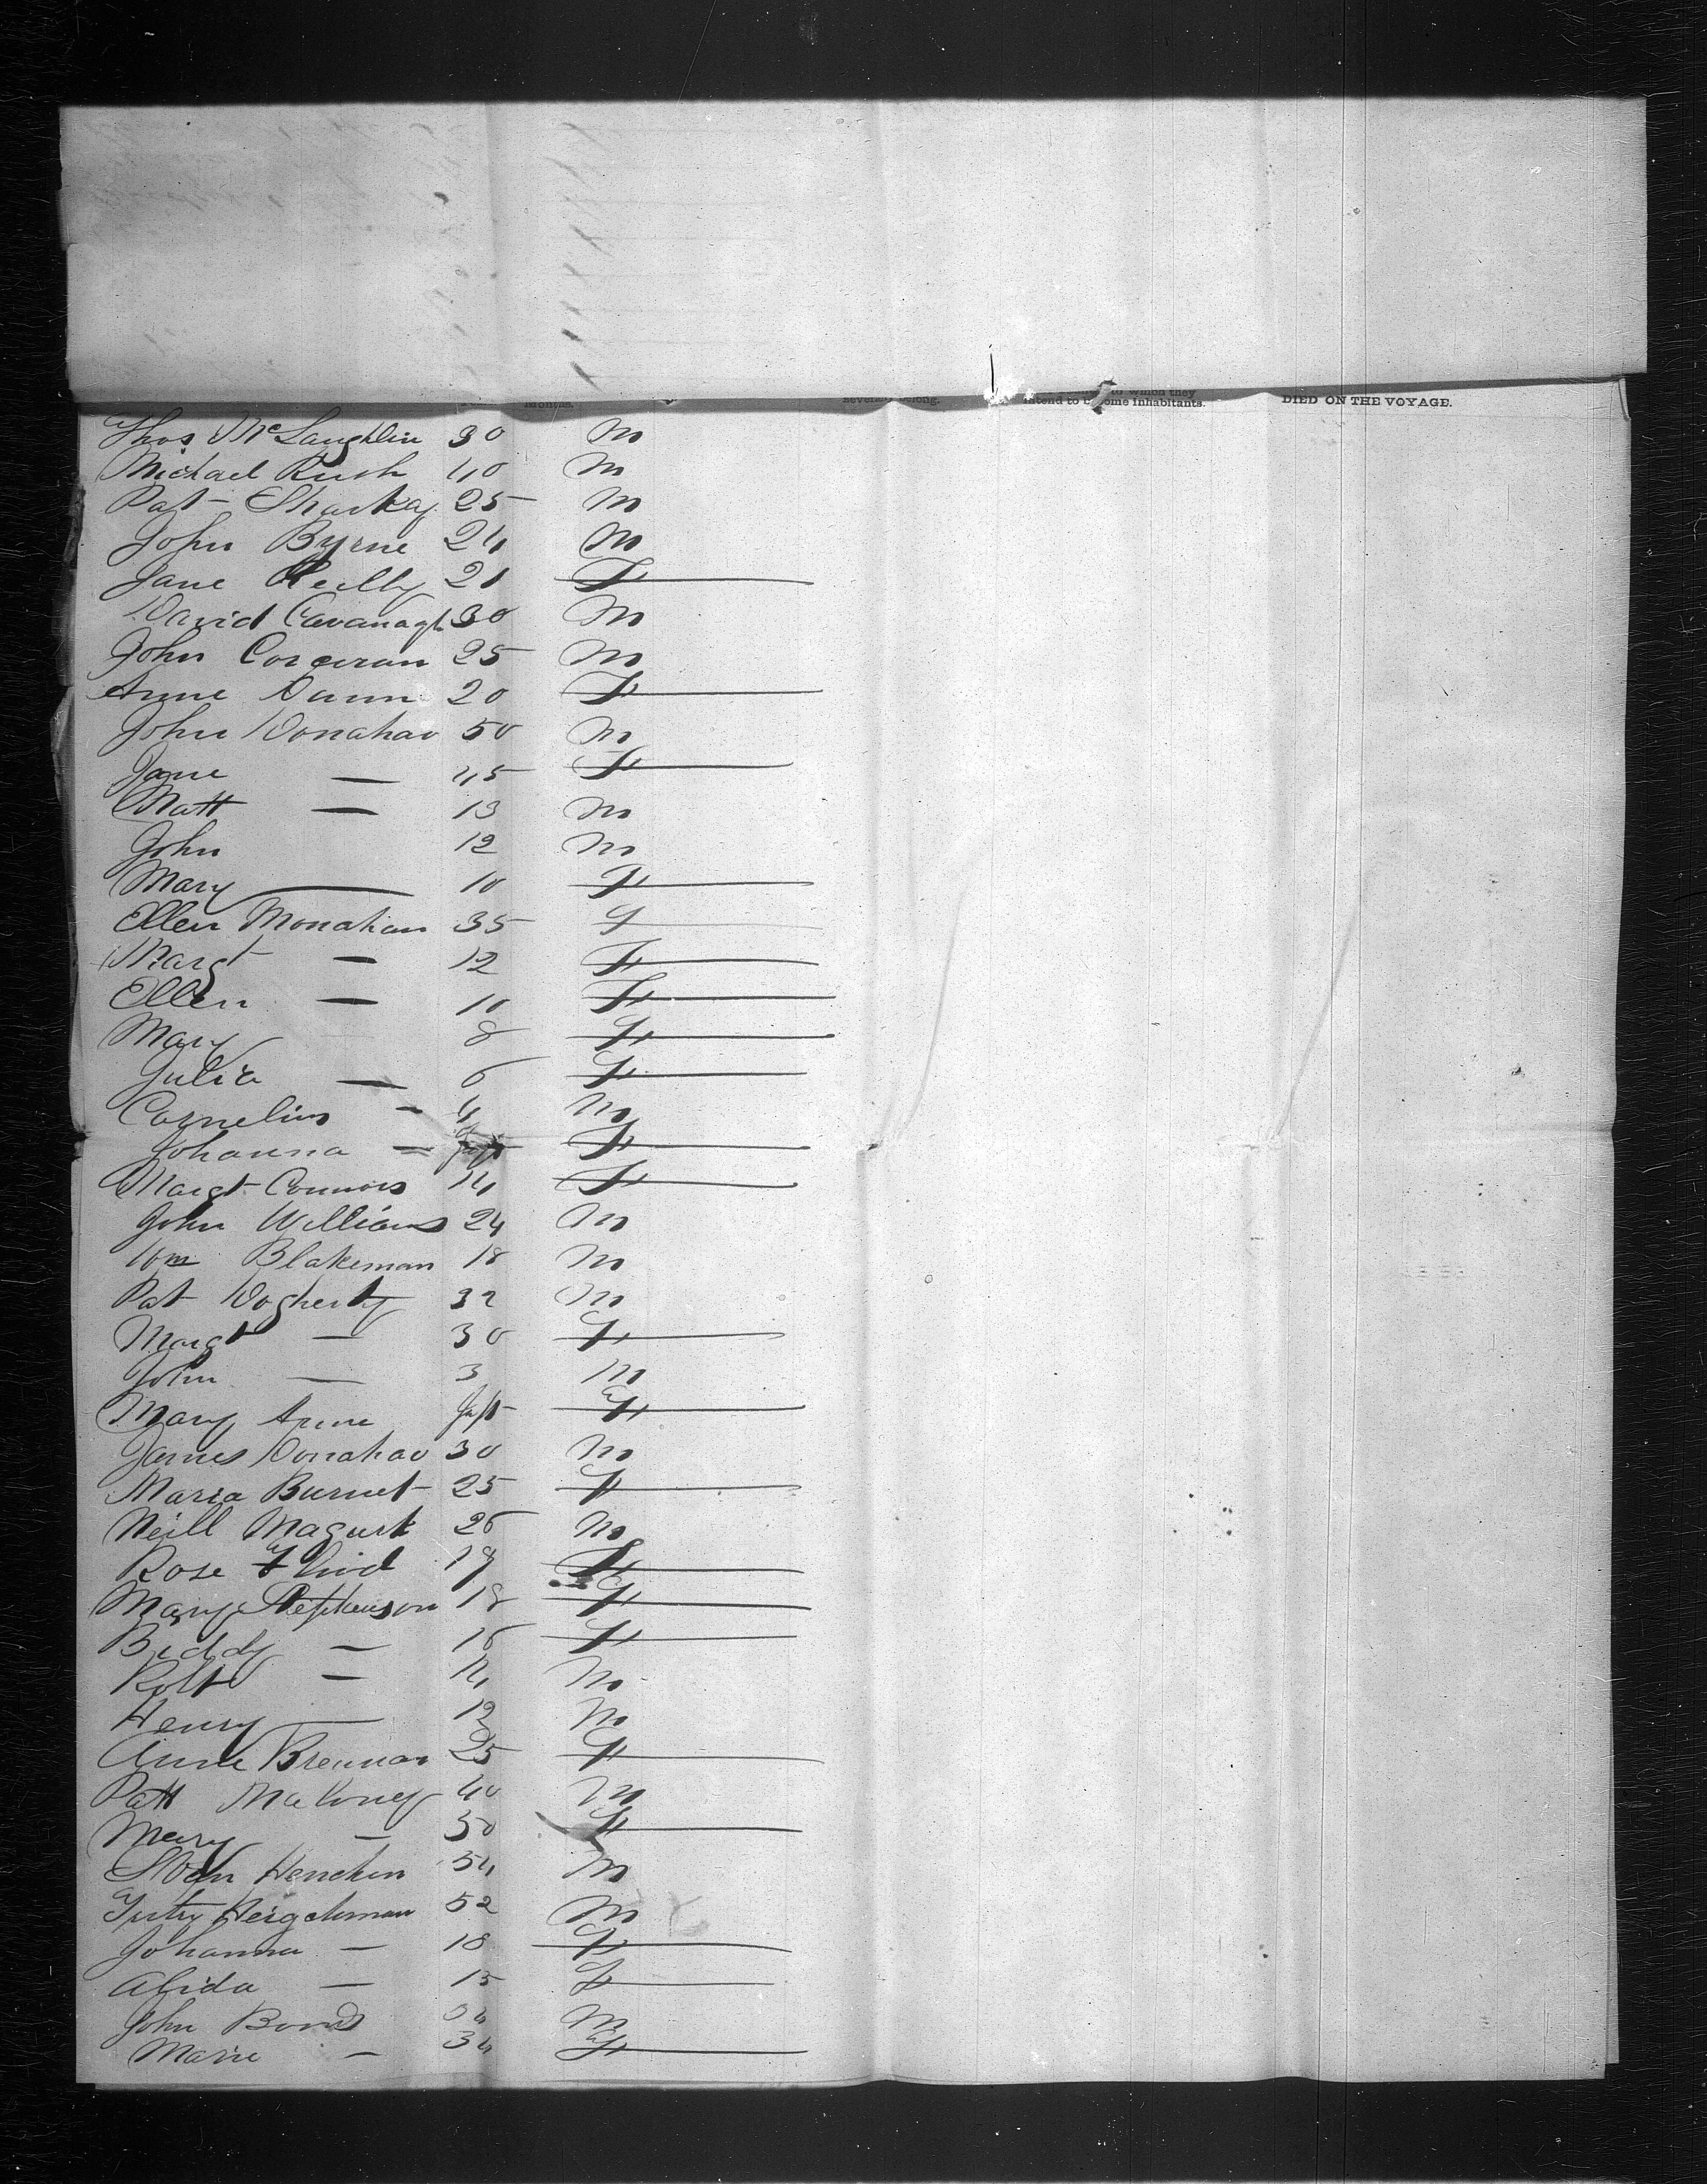 Months. severally belong. to which they
intend to become inhabitants. DIED ON THE VOYAGE.
Thos McLaughlin 30 M
Michael Rush 40 M
Pat Sharkey 25 M
John Byrne 24 M
Jane Reilly 21 F
David Cavanagh 30 M
John Corcoran 25 M
Anne Dunn 20 F
John Donahao 50 M
Jane — 45 F
Matt — 13 M
John 12 M
Mary — 10 F
Ellen Monahan 35 F
Margt — 12 F
Ellen — 10 F
Mary 8 F
Julia — 6 F
Cornelius — 4 M
Johanna — Inft F
Margt Connors 14 F
John Williams 24 M
Wm Blakeman 18 M
Pat Dogherty 32 M
Margt — 30 F
John — 3 M
Mary Anne Inft F
James Donahao 30 M
Maria Burnet 25 F
Neill Magurk 26 M
Rose 19 F
Mary Stephenson 18 F
Biddy — 16 F
Robt — 14 M
Henry — 12 M
Anne Brennan 25 F
Patt Maloney 40 M
Mary — 50 F
Henchen 54 M
52 M
Johanna — 18 F
Alida — 15 F
John M
Marie — 34 F